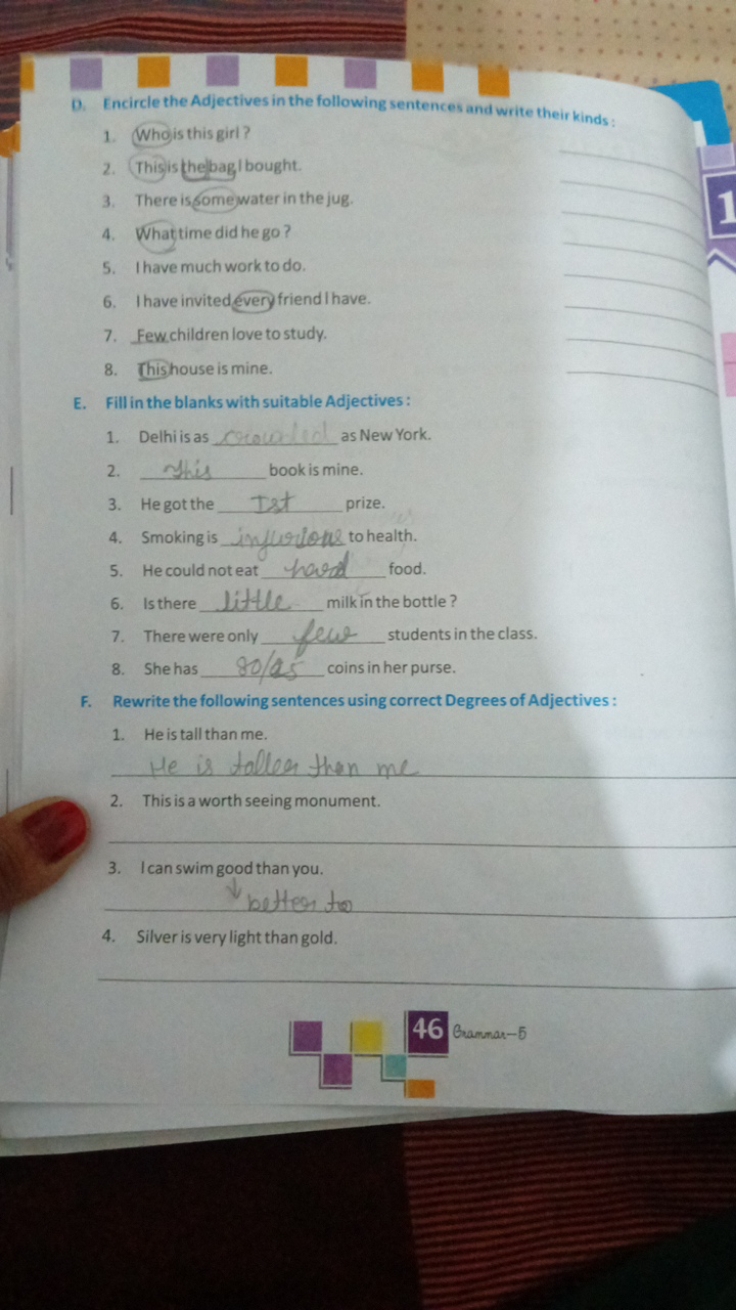 D. Encircle the Adjectives in the following sentences and write their kinds :
1. Who is this girl ?
2. This is the bag I bought.
3. There is some water in the jug.
4. What time did he go ?
5. I have much work to do.
6. I have invited every friend I have.
7. Few children love to study.
8. This house is mine.
E. Fill in the blanks with suitable Adjectives :
1. Delhi is as crowded as New York.
2. This book is mine.
3. He got the Ist prize.
4. Smoking is injurious to health.
5. He could not eat hard food.
6. Is there little milk in the bottle ?
7. There were only few students in the class.
8. She has coins in her purse.
F. Rewrite the following sentences using correct Degrees of Adjectives :
1. He is tall than me.
He is taller than me
2. This is a worth seeing monument.
3. I can swim good than you.
better to
4. Silver is very light than gold.
46 Grammar—5
1